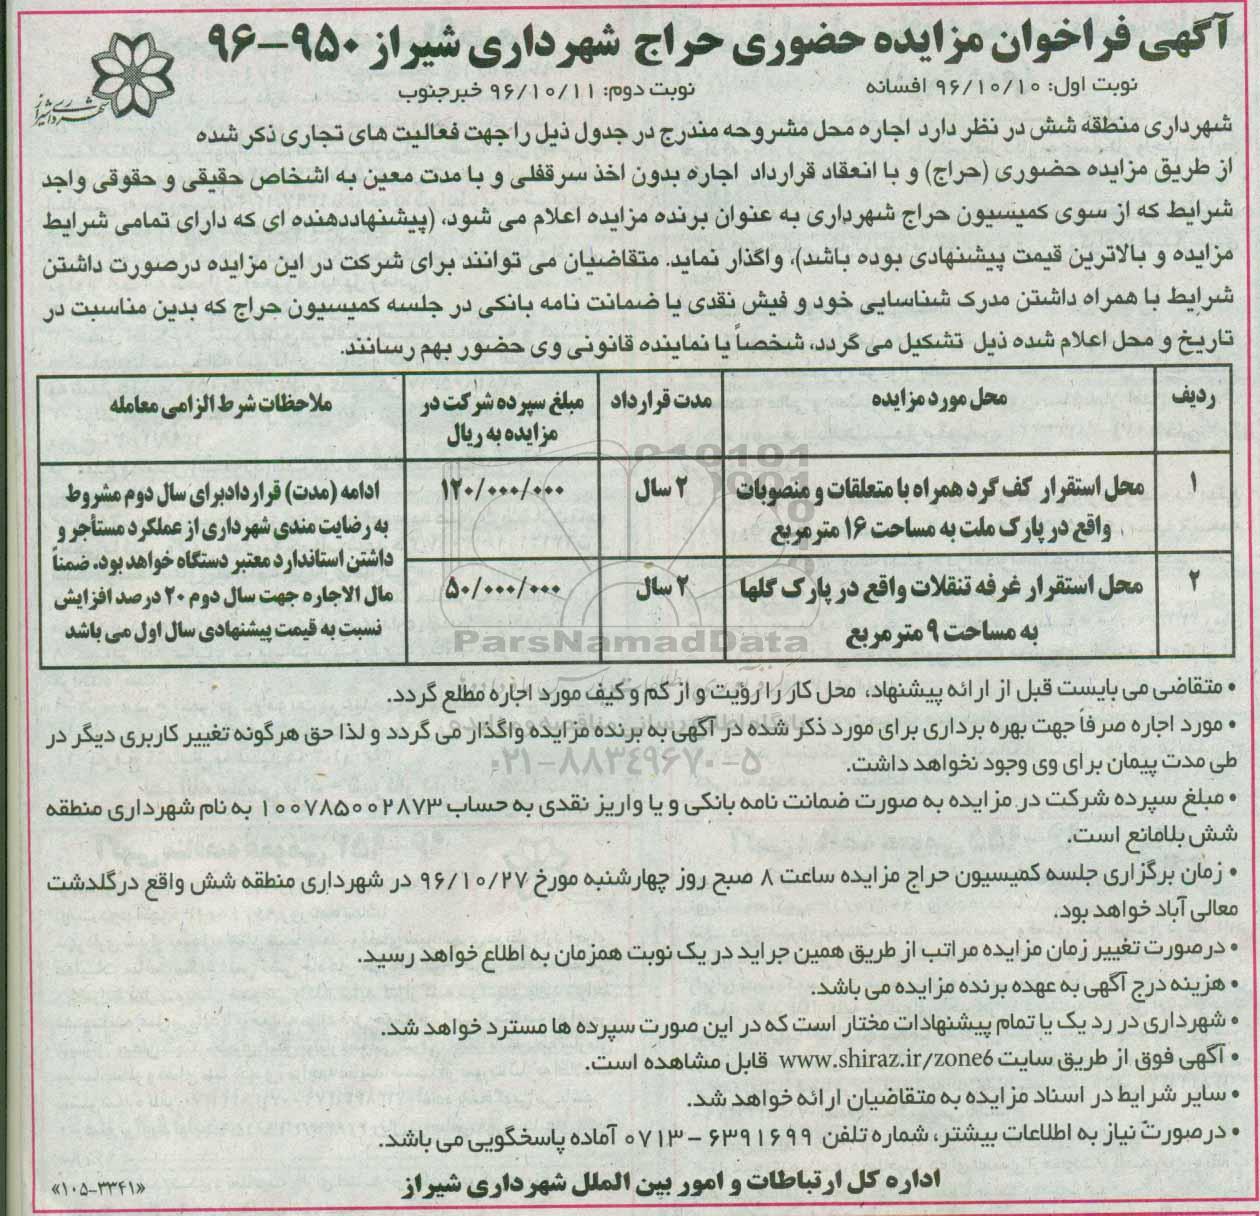 آگهی فراخوان مزایده حضوری حراج شهرداری شیراز ۹۵۰-۹۶
شهرداری شیراز
نوبت اول: ۹۶/۱۰/۱۰ افسانه
نوبت دوم: ۹۶/۱۰/۱۱ خبرجنوب
شهرداری منطقه شش در نظر دارد اجاره محل مشروحه مندرج در جدول ذیل را جهت فعالیت های تجاری ذکر شده
از طریق مزایده حضوری (حراج) و با انعقاد قرارداد اجاره بدون اخذ سرقفلی و با مدت معین به اشخاص حقیقی و حقوقی واجد
شرایط که از سوی کمیسیون حراج شهرداری به عنوان برنده مزایده اعلام می شود، (پیشنهاددهنده ای که دارای تمامی شرایط
مزایده و بالاترین قیمت پیشنهادی بوده باشد)، واگذار نماید. متقاضیان می توانند برای شرکت در این مزایده درصورت داشتن
شرایط با همراه داشتن مدرک شناسایی خود و فیش نقدی یا ضمانت نامه بانکی در جلسه کمیسیون حراج که بدین مناسبت در
تاریخ و محل اعلام شده ذیل تشکیل می گردد، شخصاً یا نماینده قانونی وی حضور بهم رسانند.
ردیف
محل مورد مزایده
مدت قرارداد
مبلغ سپرده شرکت در
مزایده به ریال
ملاحظات شرط الزامی معامله
۱
محل استقرار کف گرد همراه با متعلقات و منصوبات
واقع در پارک ملت به مساحت ۱۶ مترمربع
۲ سال
۱۲۰/۰۰۰/۰۰۰
ادامه (مدت) قراردادبرای سال دوم مشروط
به رضایت مندی شهرداری از عملکرد مستأجر و
داشتن استاندارد معتبر دستگاه خواهد بود. ضمناً
مال الاجاره جهت سال دوم ۲۰ درصد افزایش
نسبت به قیمت پیشنهادی سال اول می باشد
۲
محل استقرار غرفه تنقلات واقع در پارک گلها
به مساحت ۹ مترمربع
۲ سال
۵۰/۰۰۰/۰۰۰
ParsNamadData
۰۲۱-۸۸۳۴۹۶۷۰-۵
• متقاضی می بایست قبل از ارائه پیشنهاد، محل کار را رؤیت و از کم و کیف مورد اجاره مطلع گردد.
• مورد اجاره صرفاً جهت بهره برداری برای مورد ذکر شده در آگهی به برنده مزایده واگذار می گردد و لذا حق هرگونه تغییر کاربری دیگر در
طی مدت پیمان برای وی وجود نخواهد داشت.
• مبلغ سپرده شرکت در مزایده به صورت ضمانت نامه بانکی و یا واریز نقدی به حساب ۱۰۰۷۸۵۰۰۲۸۷۳ به نام شهرداری منطقه
شش بلامانع است.
• زمان برگزاری جلسه کمیسیون حراج مزایده ساعت ۸ صبح روز چهارشنبه مورخ ۹۶/۱۰/۲۷ در شهرداری منطقه شش واقع درگلدشت
معالی آباد خواهد بود.
• درصورت تغییر زمان مزایده مراتب از طریق همین جراید در یک نوبت همزمان به اطلاع خواهد رسید.
• هزینه درج آگهی به عهده برنده مزایده می باشد.
• شهرداری در رد یک یا تمام پیشنهادات مختار است که در این صورت سپرده ها مسترد خواهد شد.
• آگهی فوق از طریق سایت www.shiraz.ir/zone6 قابل مشاهده است.
• سایر شرایط در اسناد مزایده به متقاضیان ارائه خواهد شد.
• درصورت نیاز به اطلاعات بیشتر، شماره تلفن ۶۳۹۱۶۹۹ - ۰۷۱۳ آماده پاسخگویی می باشد.
اداره کل ارتباطات و امور بین الملل شهرداری شیراز
«۱۰۵-۳۳۴۱»